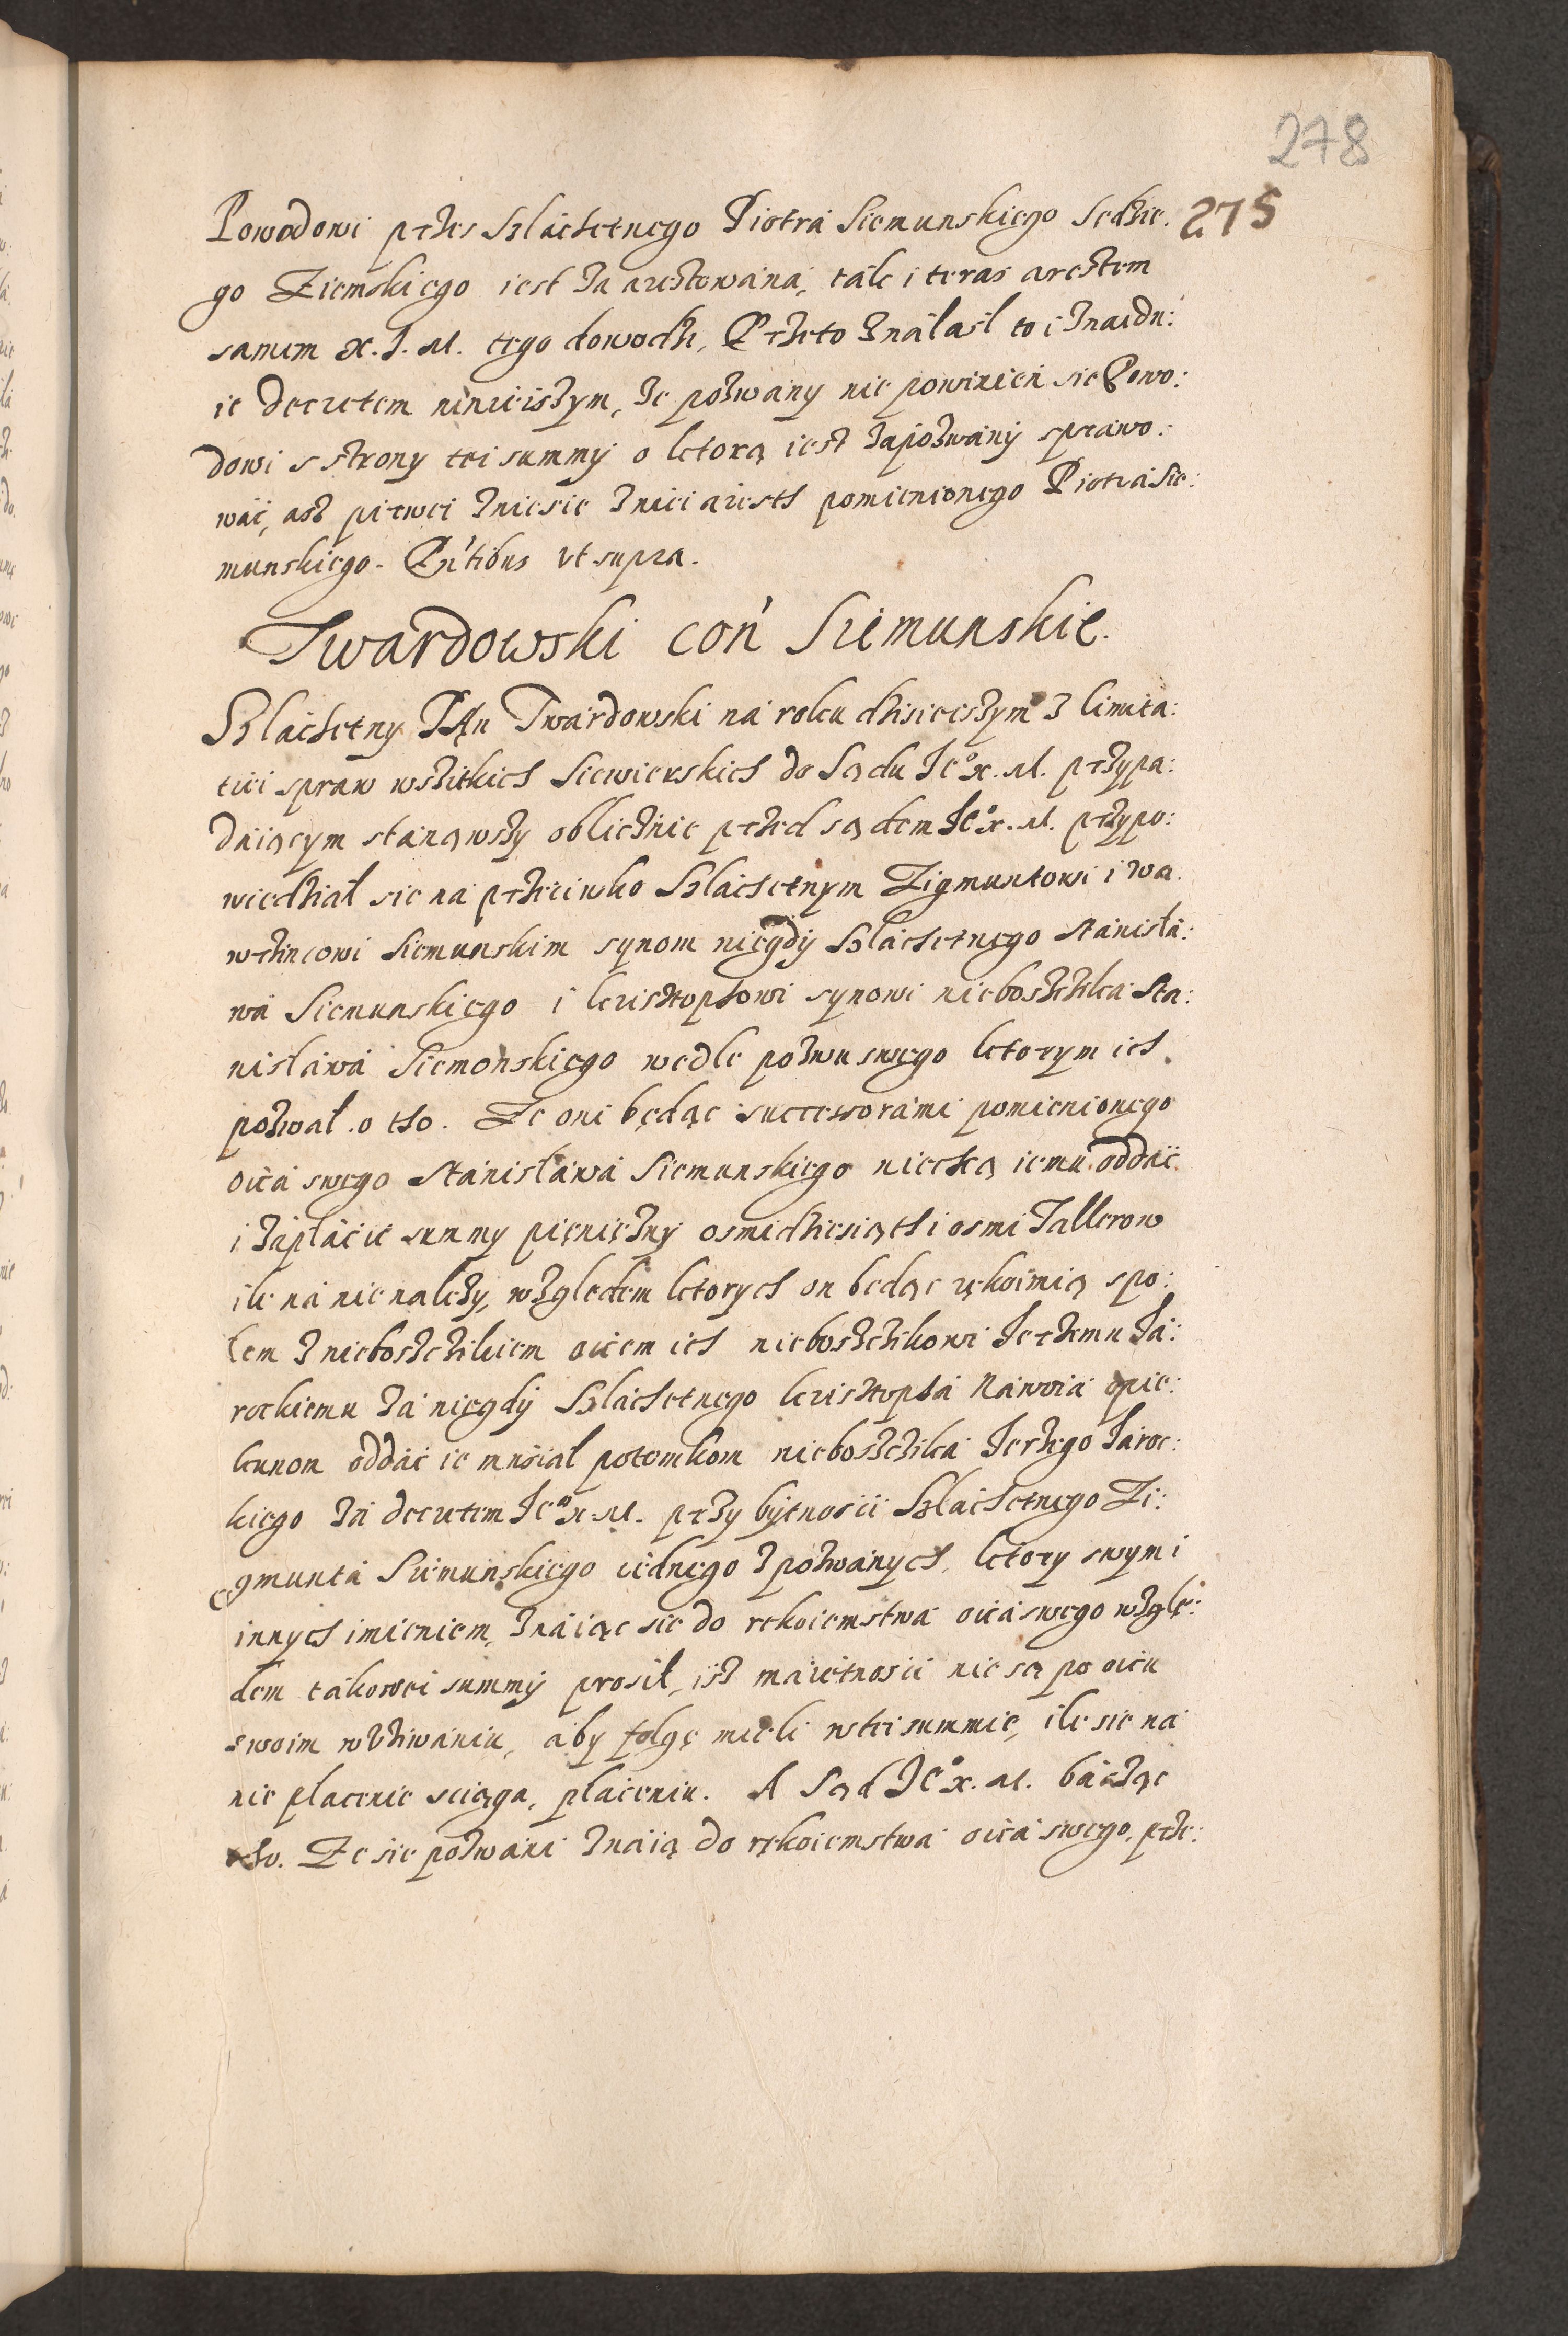 278
Powodowi przes Szlachetnego Piotra Siemunskiego Sędzie. 275
go Ziemskiego iest zaaresztowana, takt i teras aresztem
samem X. J. M. tego dowodzi, Przeto znalasl to i znaidu:
ie decretem ninieiszym, ze pozwany nie powinien sie Powo:
dowi s strony tei summy o ktorą iest zapozwany sprawo:
wać, asz pierwei zniesie zniei aresth pomienionego Piotra Sie:
munskiego. Pntibus vt supra.
Twardowski con Siemunskie.
Szlachetny Pan Twardowski na roku dzisieiszym z limita:
tiei spraw wszitkich Siewierskich do Sądu Jeo x. M. przypa:
daiącym stanąwszy oblicznie przed sądem Jeo x. M. przypo:
wiedział sie na przeciwko Szlachetnym Zigmuntowi i Wa
wrzincowi Siemunskim synom niegdy Szlachetnego Stanisła:
wa Siemunskiego i krisztophowi synowi nieboszczika Sta:
nisława Siemonskiego wedle pozwu swego ktorym ich
pozwał o tho. Ze oni będąc successorami pomienionego
oica swego Stanisława Siemunskiego niechcą iemu oddać
i zapłacić summy pienięzny osmidziesiąth i osmi Tallerow
ile na nie nalezy, względem ktorych on będąc rękoimią spo:
łem z nieboszczikiem oicem ich nieboszczikowi Jerzemu Ja:
rockiemu za niegdy Szlachetnego krisztopha Nawoia opie:
kunom oddać ie musiał potomkom nieboszczika Jerzego Jaroc:
kiego za decretem Jeo x. M. przy bytnosci Szlachetnego Zi:
gmunta Siemunskiego iednego z pozwanych, ktory swym i
innych imieniem, znaiąc sie do rękoiemstwa oica swego wzglę:
dem takowei summy prosił, isz maiętnosci nie są po oicu
swoim w vziwaniu, aby folgę mieli w tei summie, ile sie na
nie płacenie sciąga, płaceniu. A Sąd Jeo x. M. bacząc
tho. Ze sie pozwani znaią do rękoiemstwa oica swego, prze: